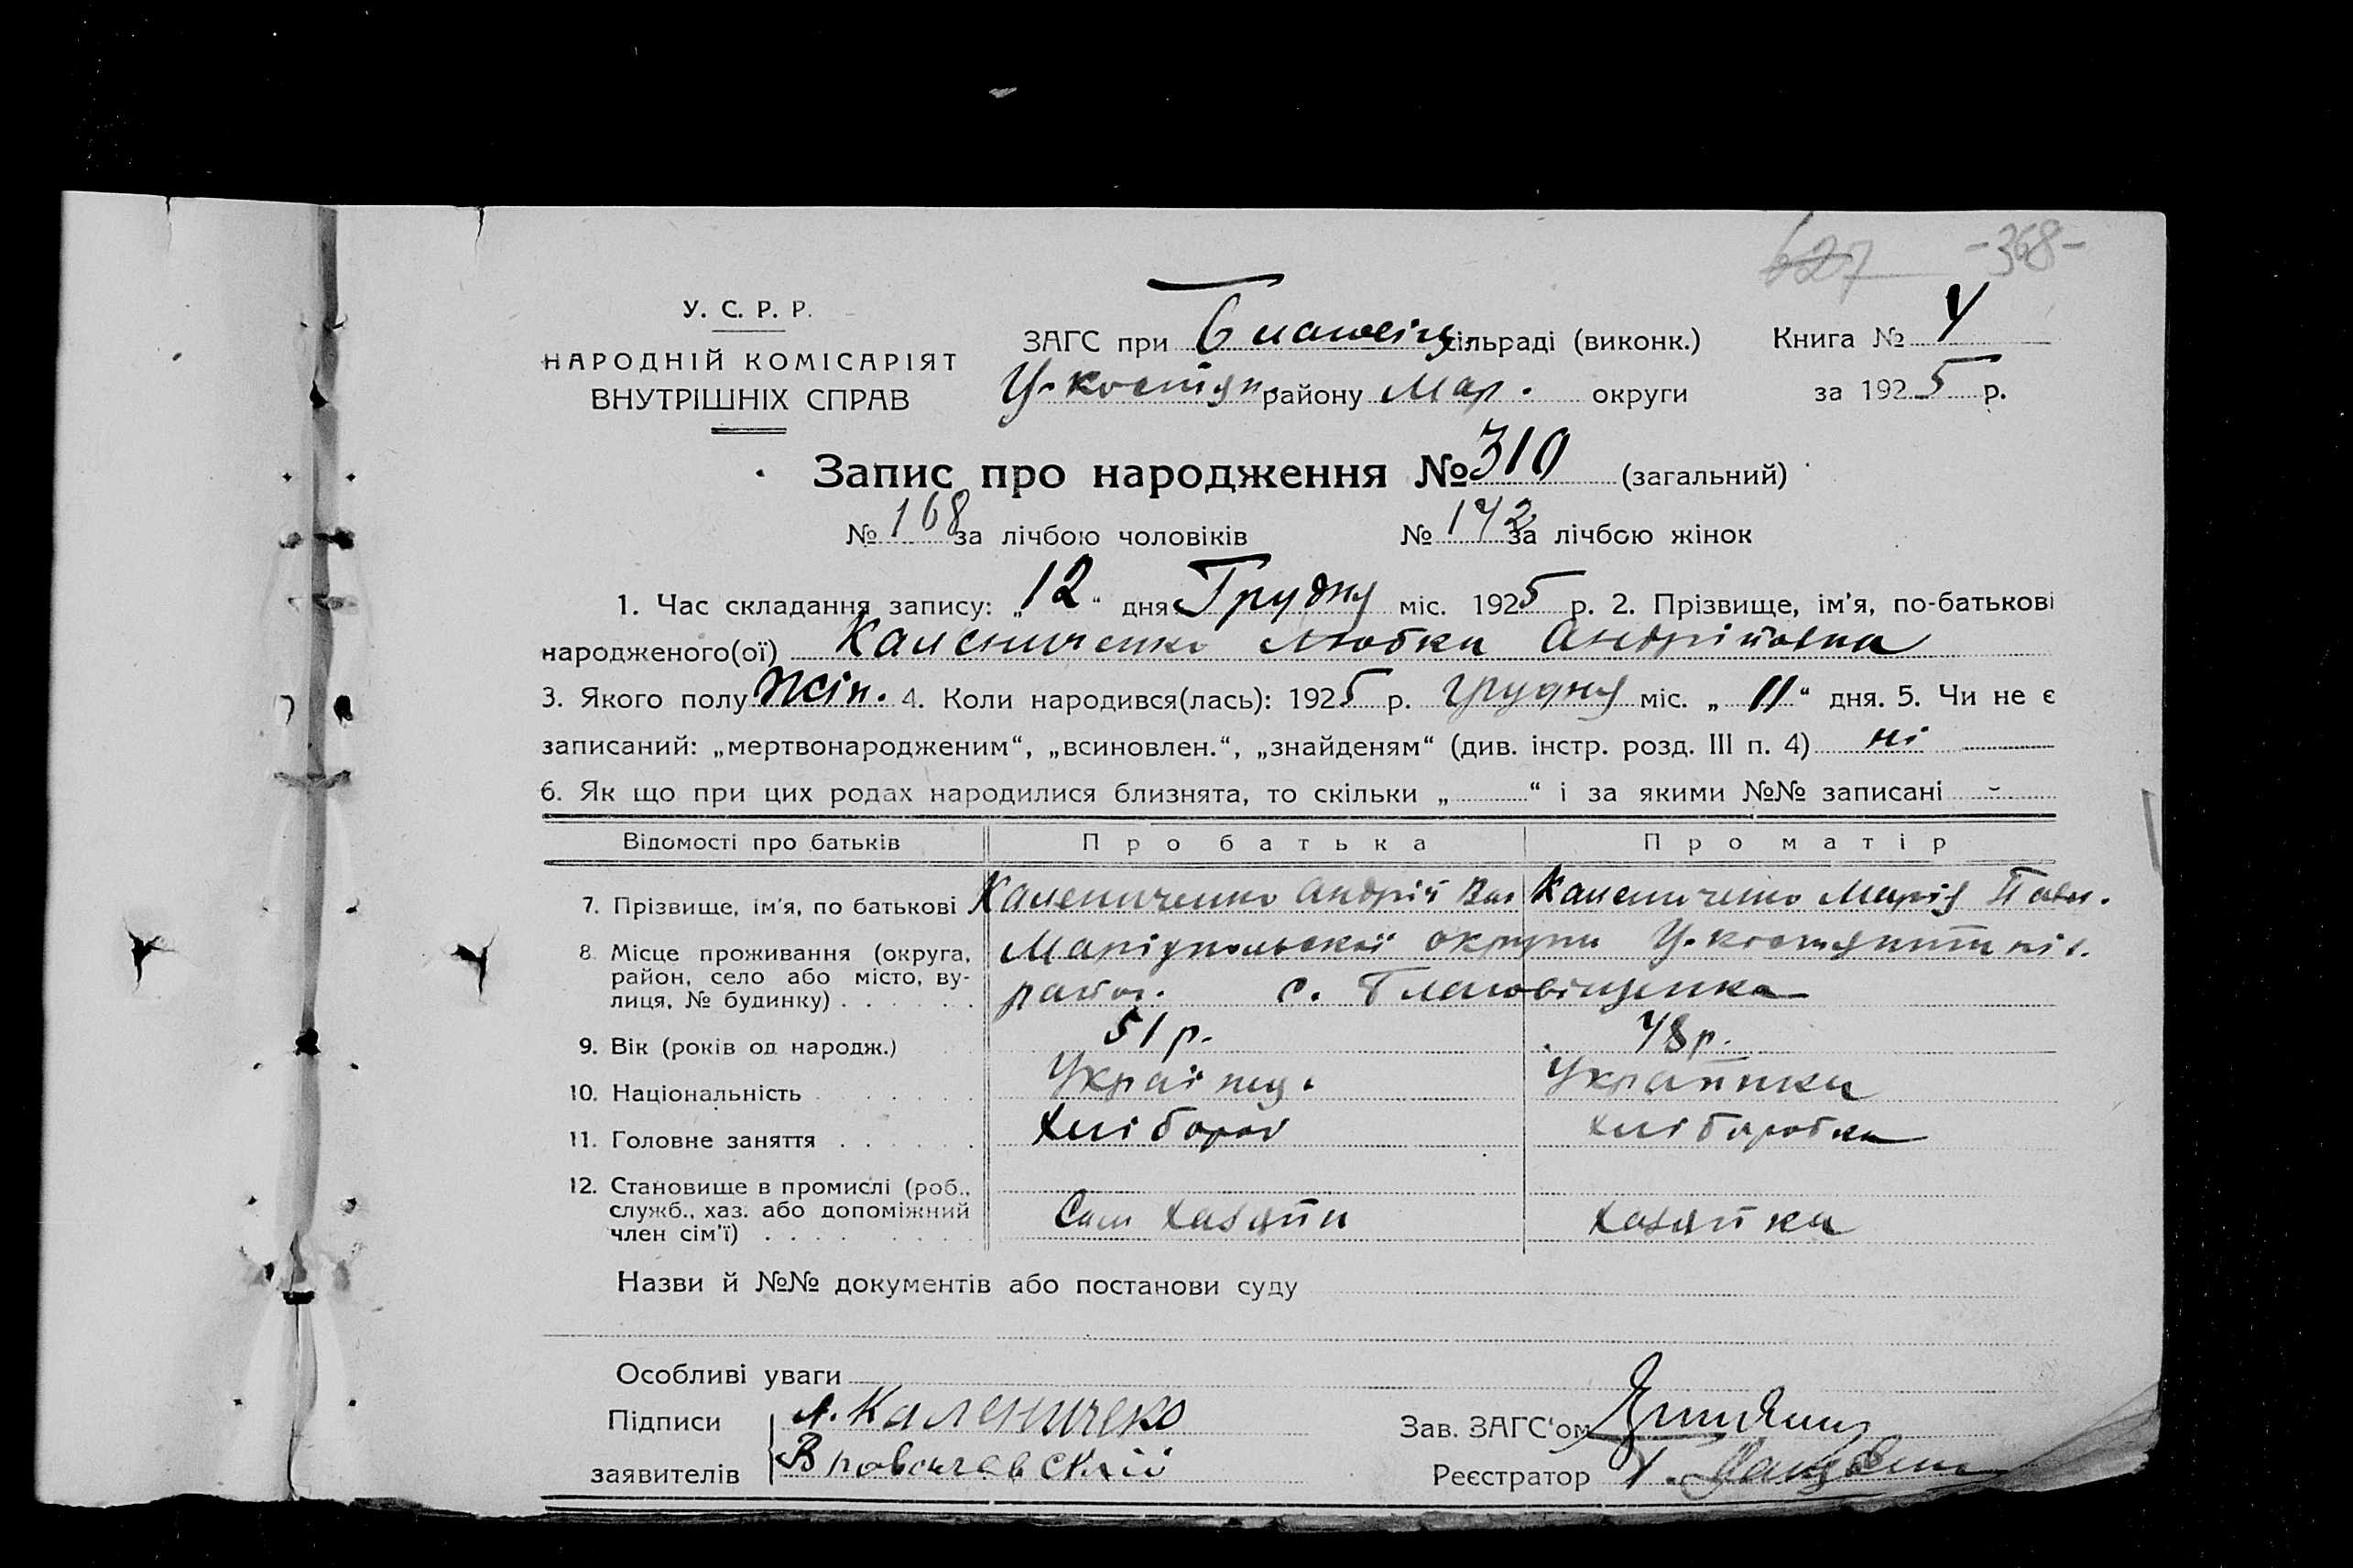 627 -368-
У. С. Р. Р.
НАРОДНІЙ КОМІСАРІЯТ
ВНУТРІШНІХ СПРАВ
ЗАГС при сільраді (виконк.) Книга № 4
У-костян. району Мар. округи за 1925 р.
Запис про народження № 310 (загальний)
№ 168 за лічбою чоловіків № 142 за лічбою жінок
1. Час складання запису: „12“ дня Грудня міс. 1925 р. 2. Прізвище, ім'я, по-батькові
народженого(ої) Калениченко Любка Андріївна
3. Якого полу Жін. 4. Коли народився(лась): 1925 р. грудня міс. „11“ дня. 5. Чи не є
записаний: „мертвонародженим“, „всиновлен.“, „знайденям“ (див. інстр. розд. III п. 4) ні
6. Як що при цих родах народилися близнята, то скільки „ “ і за якими №№ записані -
Відомості про батьків Про батька Про матір
7. Прізвище, ім'я, по батькові Калениченко Андрій Вас Калениченко Марія Павл.
8. Місце проживання (округа, район, село або місто, вулиця, № будинку) Маріупольської округи У-костянтинів.
район. с. Благовіщенка
9. Вік (років од народж.) 51 р. 48 р.
10. Національність Українц. Українка
11. Головне заняття Хлібороб Хліборобка
12. Становище в промислі (роб., служб., хаз. або допоміжний член сім'ї) Сам хазяїн хазяйка
Назви й №№ документів або постанови суду
Особливі уваги
Підписи А. Каленичеко Зав. ЗАГС'ом
заявителів Реєстратор